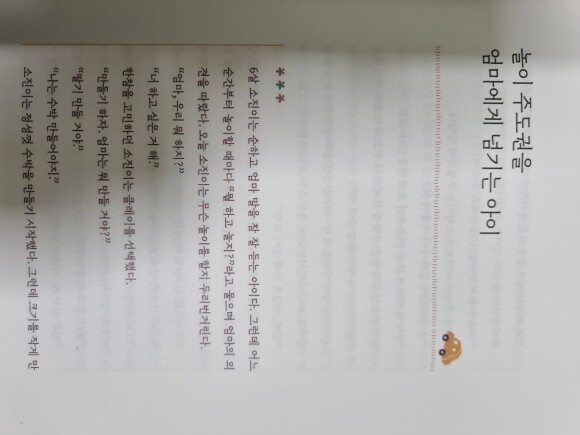 놀이 주도권을
엄마에게 넘기는 아이
***
6살 소진이는 순하고 엄마 말을 참 잘 듣는 아이다. 그런데 어느
순간부터 놀이할 때마다 “뭘 하고 놀지?”라고 물으며 엄마의 의
견을 따랐다. 오늘 소진이는 무슨 놀이를 할지 두리번거린다.
“엄마, 우리 뭐 하지?”
“너 하고 싶은 거 해.”
한참을 고민하던 소진이는 클레이를 선택했다.
“만들기 하자. 엄마는 뭐 만들 거야?”
“딸기 만들 거야.”
“나는 수박 만들어야지.”
소진이는 정성껏 수박을 만들기 시작했다. 그런데 크기를 작게 만